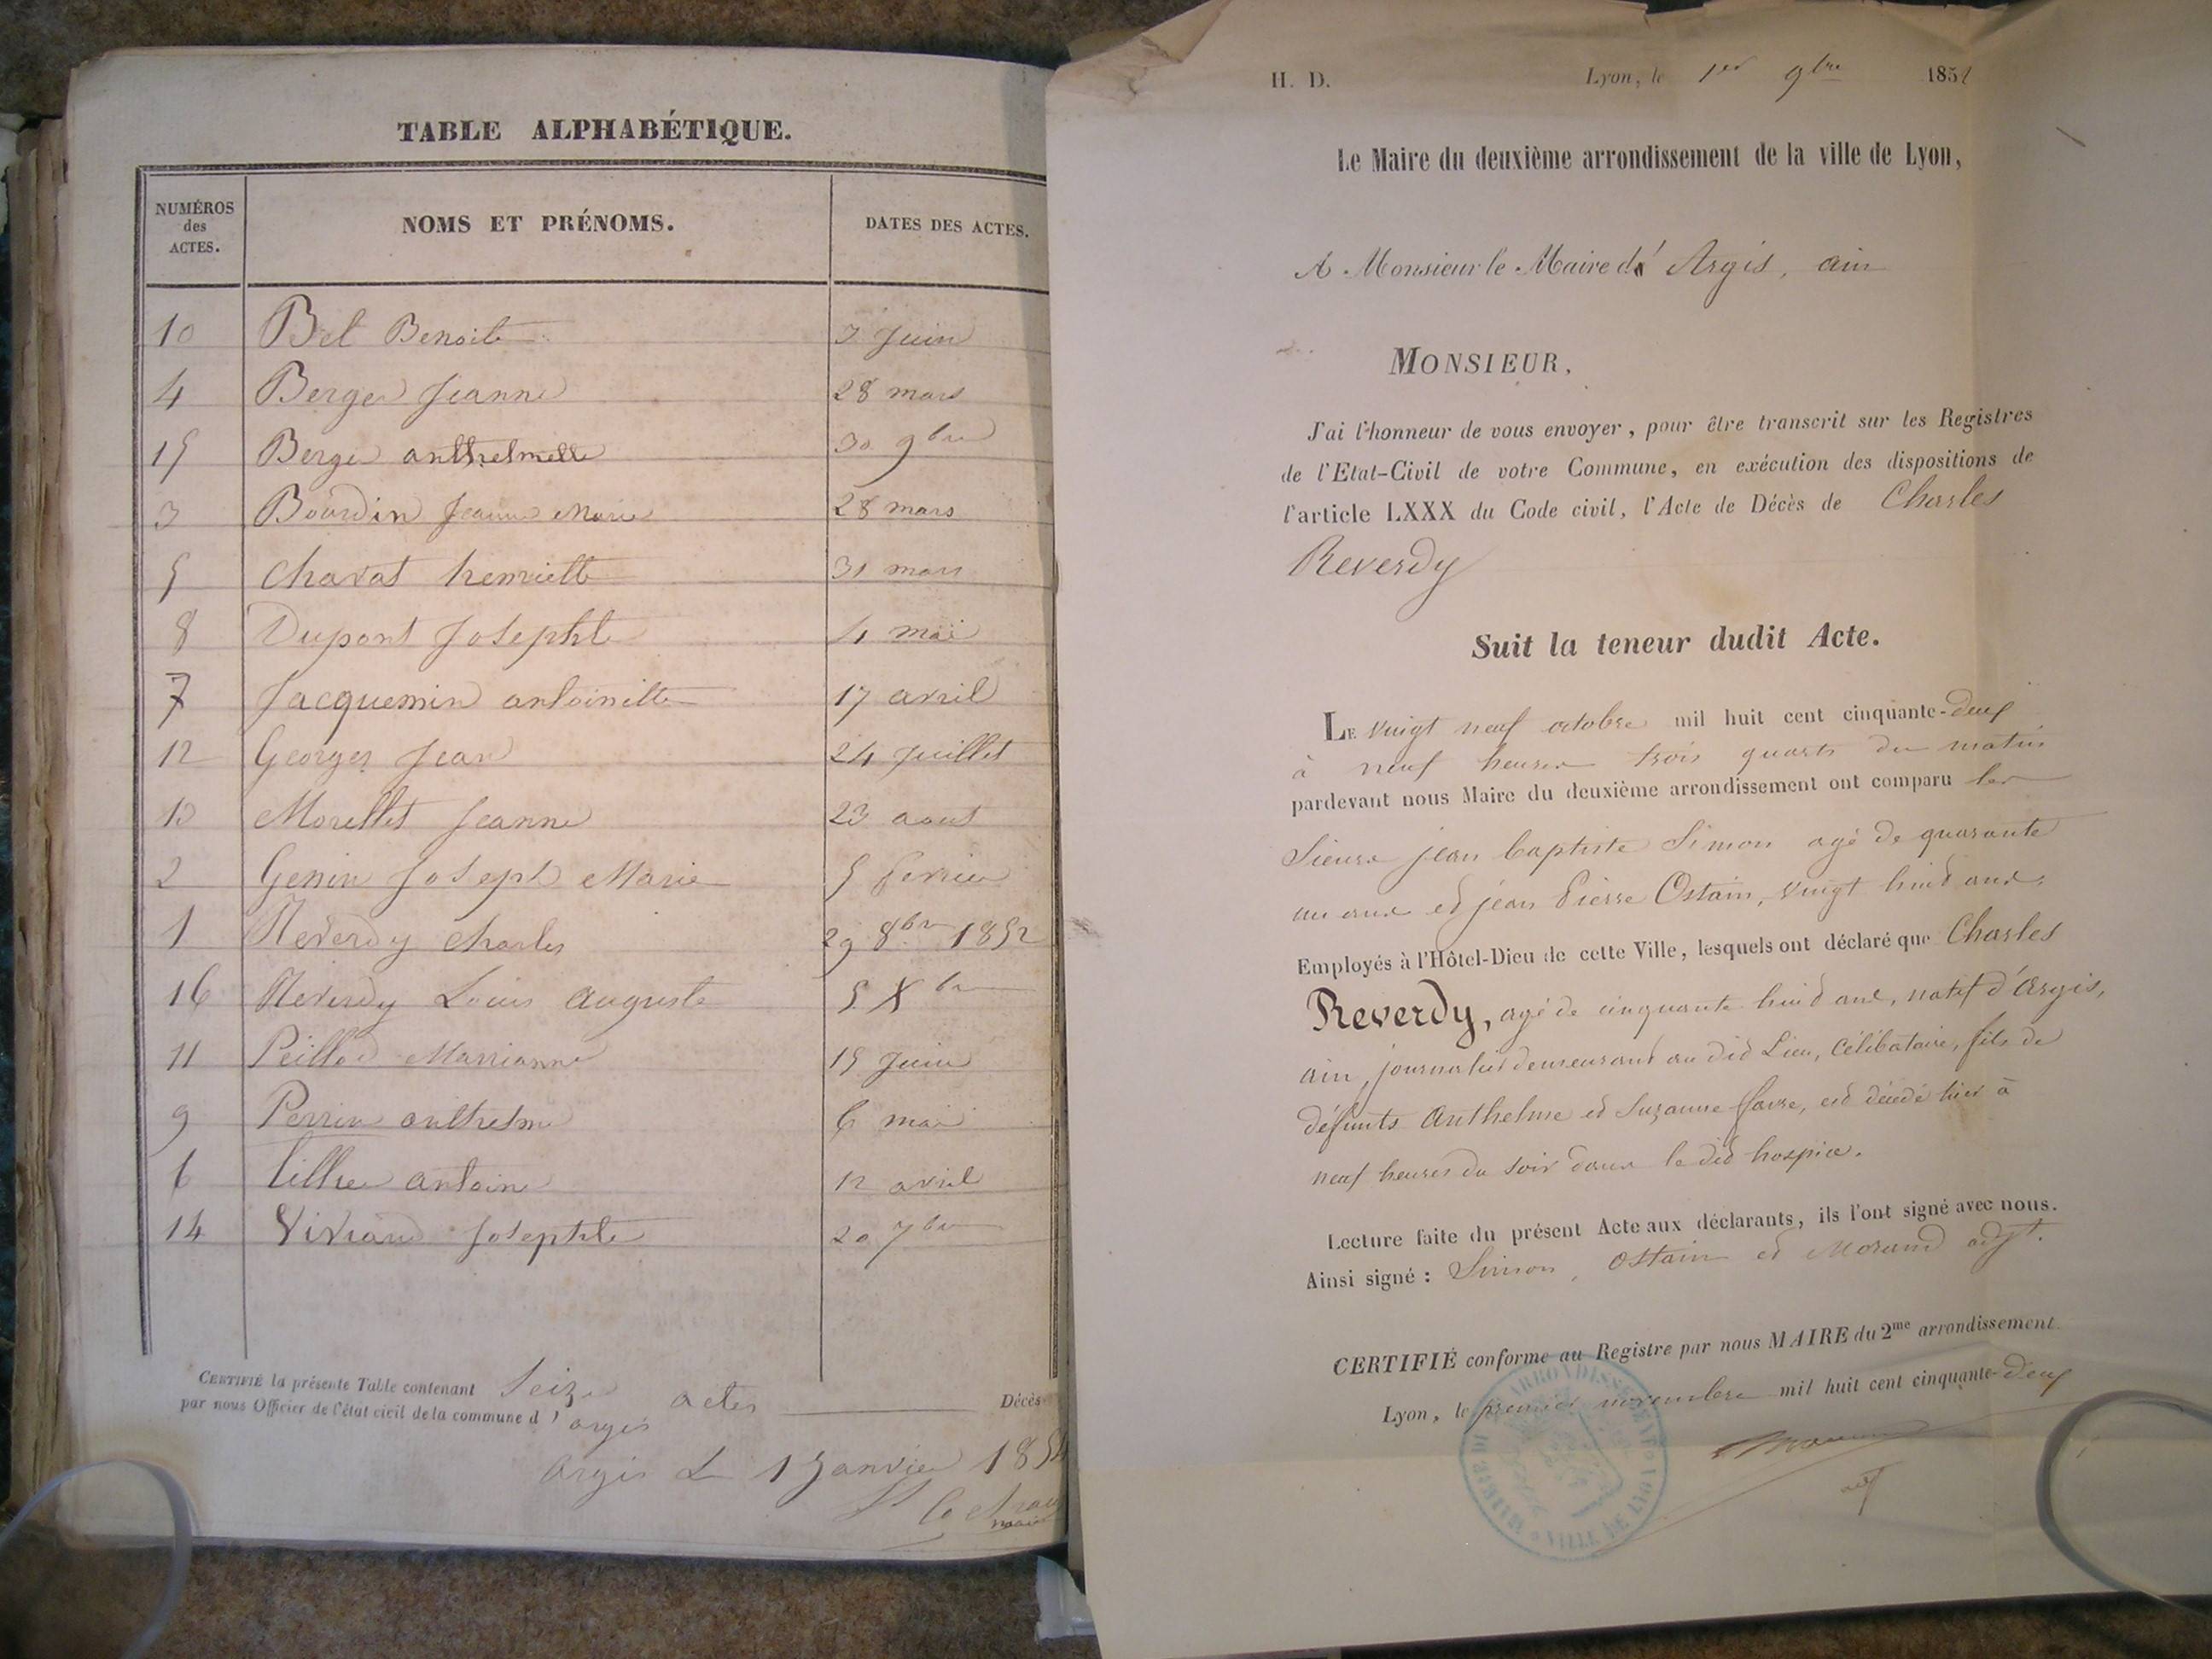 TABLE ALPHABÉTIQUE.
NUMÉROS des ACTES. NOMS ET PRÉNOMS. DATES DES ACTES.
10 Bel Benoite 7 Juin
4 Berger Jeanne 28 mars
15 Berger anthelmette 30 9bre
3 Bourdin Jeanne Marie 28 mars
5 Chavat henriette 31 mars
8 Dupont Josephte 4 mai
7 Jacquemin antoinette 17 avril
12 Georges Jean 24 Juillet
13 Morellet Jeanne 23 aout
2 Genin Joseph Marie 5 fevrier
1 Reverdy Charles 29 8bre 1852
16 Reverdy Louis auguste 5 Xbre
11 Peillod Marrianne 15 Juin
9 Perrin anthelme 6 mai
6 antoine 12 avril
14 Viviand Josephte 20 7bre
CERTIFIÉ la présente Table contenant Seize actes Décès
par nous Officier de l'état civil de la commune d'argis
argis Le 1 Janvier 185
H. D. Lyon, le 1er 9bre 1852
Le Maire du deuxième arrondissement de la ville de Lyon,
A Monsieur le Maire d'Argis, ain
MONSIEUR,
J'ai l'honneur de vous envoyer, pour être transcrit sur les Registres
de l'Etat-Civil de votre Commune, en exécution des dispositions de
l'article LXXX du Code civil, l'Acte de Décès de Charles
Reverdy
Suit la teneur dudit Acte.
LE vingt neuf octobre mil huit cent cinquante-deux
à neuf heures trois quarts du matin
pardevant nous Maire du deuxième arrondissement ont comparu les
Sieurs jean baptiste Simon agé de quarante
un ans et jean Pierre Ostain, vingt huit ans,
Employés à l'Hôtel-Dieu de cette Ville, lesquels ont déclaré que Charles
Reverdy, agé de cinquante huit ans, natif d'Argis,
ain, journalier demeurant au dit Lieu, Célibataire, fils de
défunts Anthelme et Suzanne favre, est décédé hier à
neuf heures du soir dans le dit hospice.
Lecture faite du présent Acte aux déclarants, ils l'ont signé avec nous.
Ainsi signé : Simon, Ostain et Morand adjt.
CERTIFIÉ conforme au Registre par nous MAIRE du 2me arrondissement.
Lyon, le premier novembre mil huit cent cinquante-deux